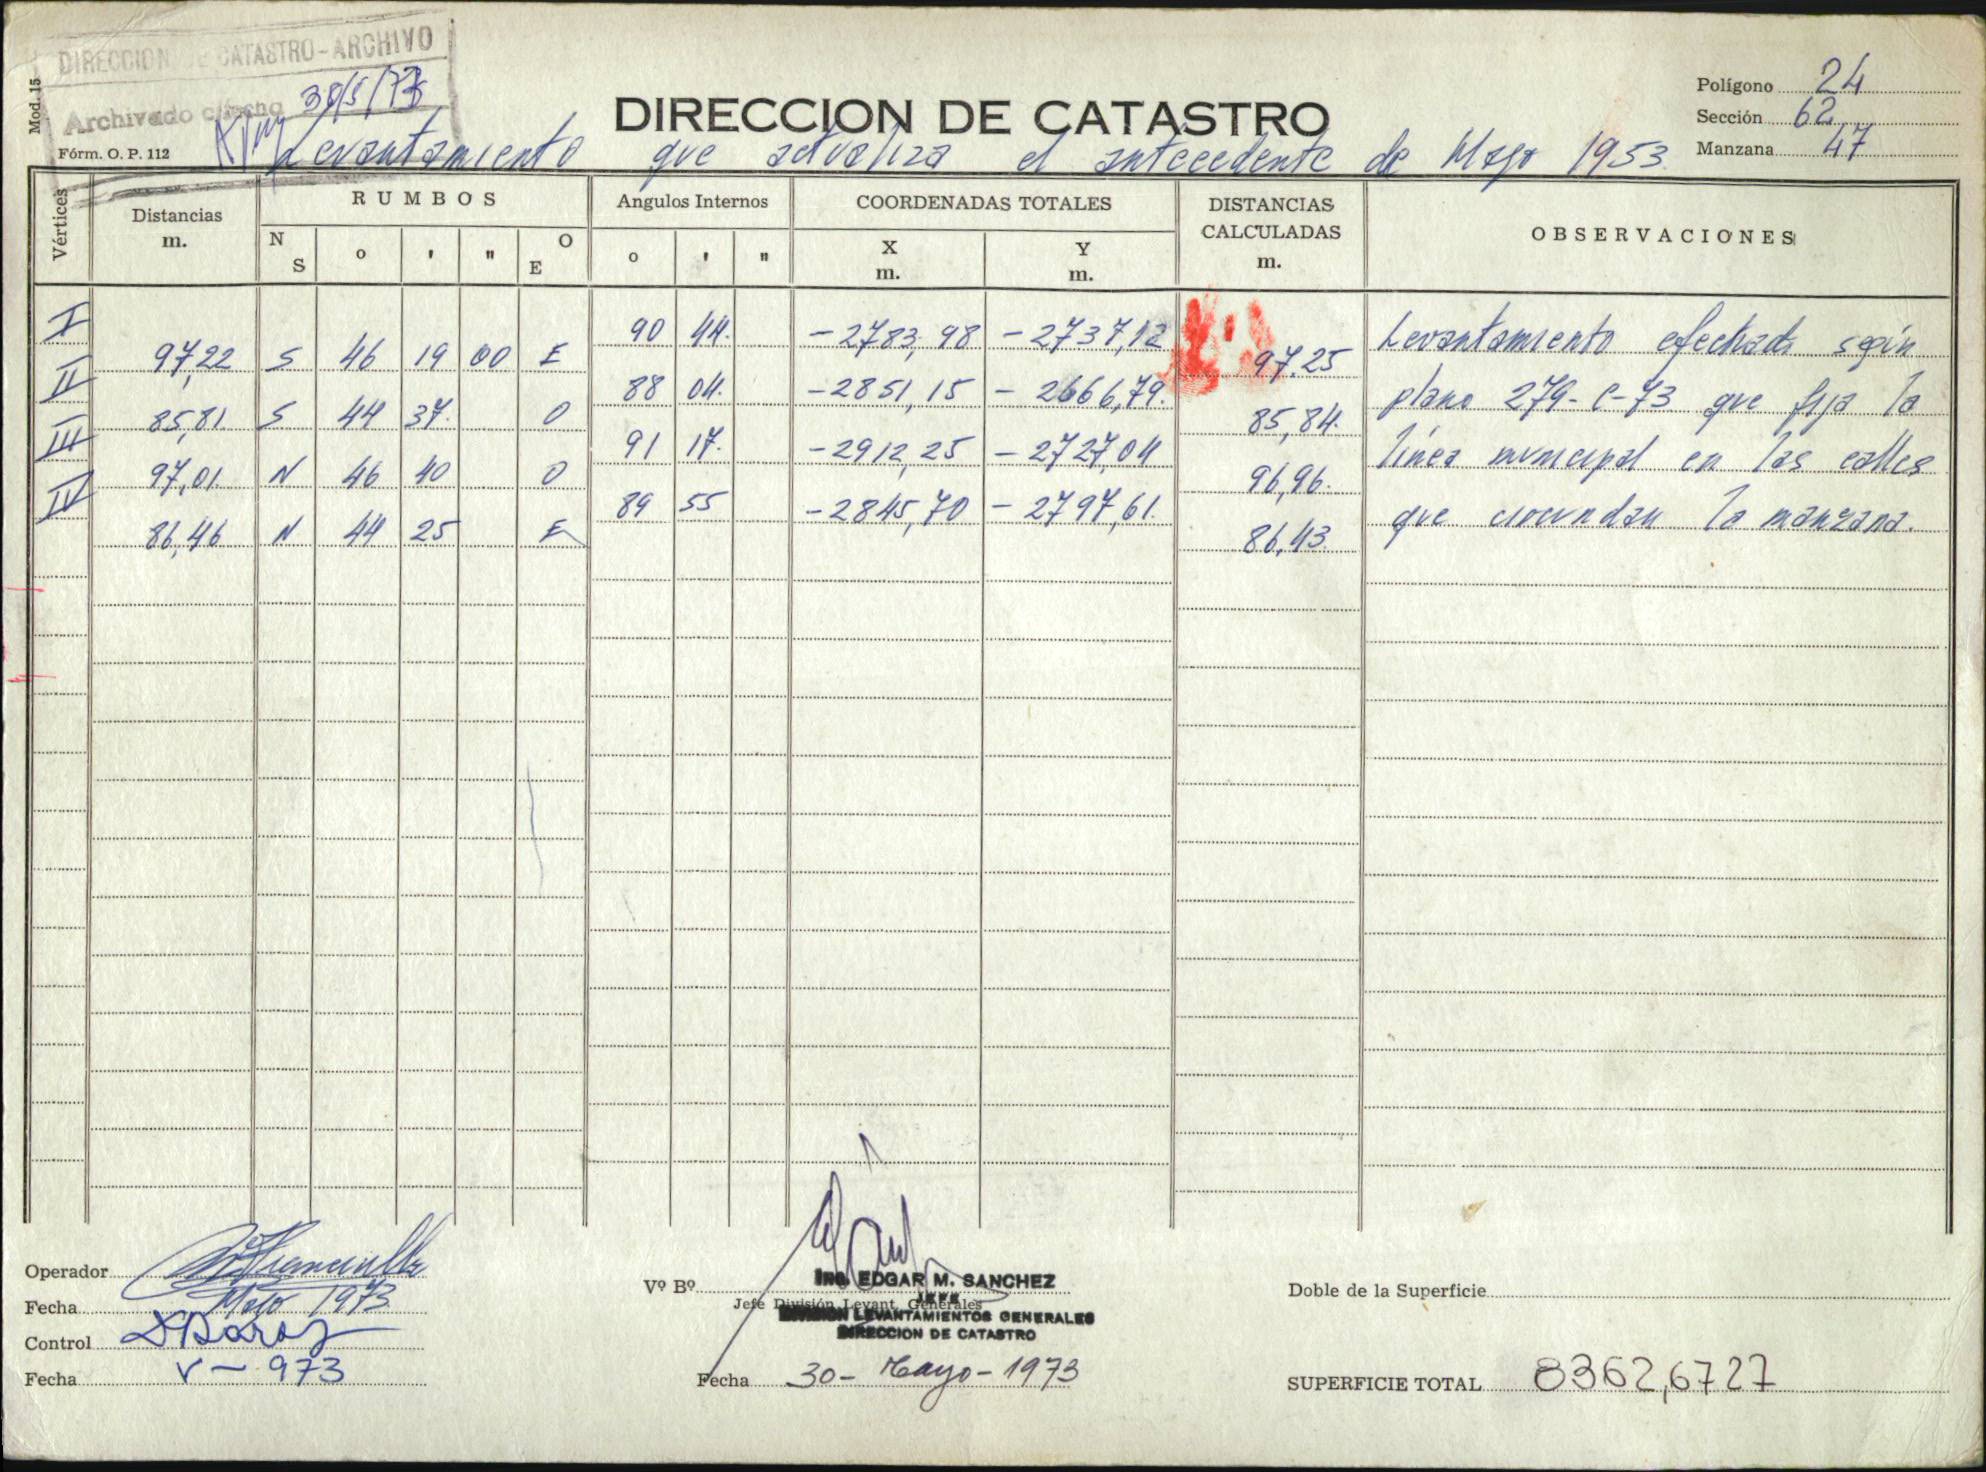 DIRECCION DE CATASTRO-ARCHIVO
Archivado c/fecho 30/5/73
Mod. 15
Fórm. O. P. 112
DIRECCION DE CATASTRO
Polígono 24
Sección 62
Manzana 47
Levantamiento que actualiza el antecedente de Mayo 1953
Vértices
Distancias m.
RUMBOS
N S o ' " O E
Angulos Internos
o ' "
COORDENADAS TOTALES
X m.
Y m.
DISTANCIAS CALCULADAS m.
OBSERVACIONES
I 90 44. -2783,98 -2737,12
97,22 S 46 19 00 E 97.25
II 88 04. -2851,15 -2666,79.
85,81. S 44 37. O 85,84.
III 91 17. -2912,25 -2727,04
97,01. N 46 40 O 96,96.
IV 89 55 -2845,70 -2797,61.
86,46 N 44 25 E 86,43.
Levantamiento efectuado según
plano 279-C-73 que fija la
línea municipal en las calles
que circundan la manzana.
Operador
Fecha Mayo 1973
Control
Fecha V-973
Vº Bº
Jefe División Levant. Generales
Ing. EDGAR M. SANCHEZ
JEFE
DIVISION LEVANTAMIENTOS GENERALES
DIRECCION DE CATASTRO
Fecha 30-Mayo-1973
Doble de la Superficie
SUPERFICIE TOTAL 8362,6727